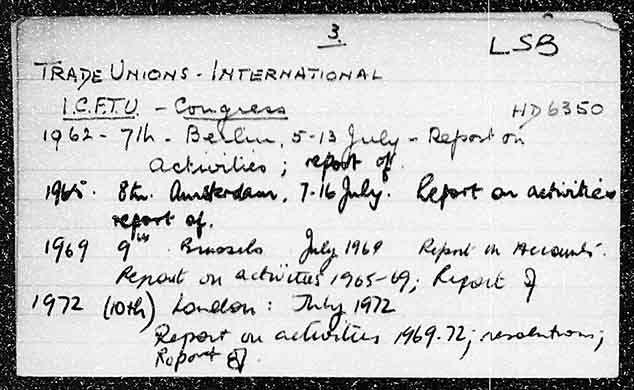 3.
LSB
TRADE UNIONS - INTERNATIONAL
I.C.F.T.U. - Congress
HD6350
1962 - 7th - Berlin, 5-13 July - Report on
activities; report of.
1965. 8th. Amsterdam, 7-16 July. Report on activities
report of.
1969 9th Brussels July 1969 Report on Accounts.
Report on activities 1965-69; Report of
1972 (10th) London: July 1972
Report on activities 1969-72; resolutions;
Report of.